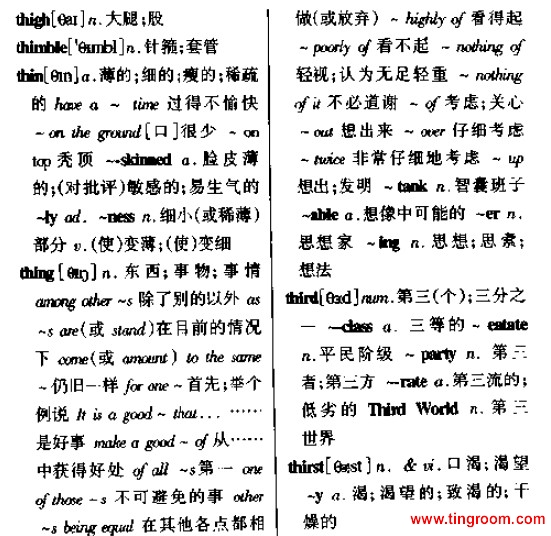 thigh[θaɪ] n. 大腿;股
thimble['θɪmbl] n. 针箍;套管
thin[θɪn] a. 薄的;细的;瘦的;稀疏
的 have a ~ time 过得不愉快
~ on the ground [口]很少 ~ on
top 秃顶 ~-skinned a. 脸皮薄
的;(对批评)敏感的;易生气的
~ly ad. ~ness n. 细小(或稀薄)
部分 v. (使)变薄;(使)变细
thing[θɪŋ] n. 东西;事物;事情
among other ~s 除了别的以外 as
~s are(或 stand)在目前的情况
下 come(或 amount) to the same
~仍旧一样 for one ~ 首先;举个
例说 It is a good ~ that... ……
是好事 make a good ~ of 从……
中获得好处 of all ~s第一 one
of those ~s 不可避免的事 other
~s being equal 在其他各点都相
做(或放弃) ~ highly of 看得起
~ poorly of 看不起 ~ nothing of
轻视;认为无足轻重 ~ nothing
of it 不必道谢 ~ of 考虑;关心
~ out 想出来 ~ over 仔细考虑
~ twice 非常仔细地考虑 ~ up
想出;发明 ~ tank n. 智囊班子
~able a. 想像中可能的 ~er n.
思想家 ~ing n. 思想;思索;
想法
third[θɜːd] num. 第三(个);三分之
一 ~-class a. 三等的 ~ eatate
n. 平民阶级 ~ party n. 第三
者;第三方 ~-rate a. 第三流的;
低劣的 Third World n. 第三
世界
thirst[θɜːst] n. & vi. 口渴;渴望
~y a. 渴;渴望的;致渴的;干
燥的
www.tingroom.com